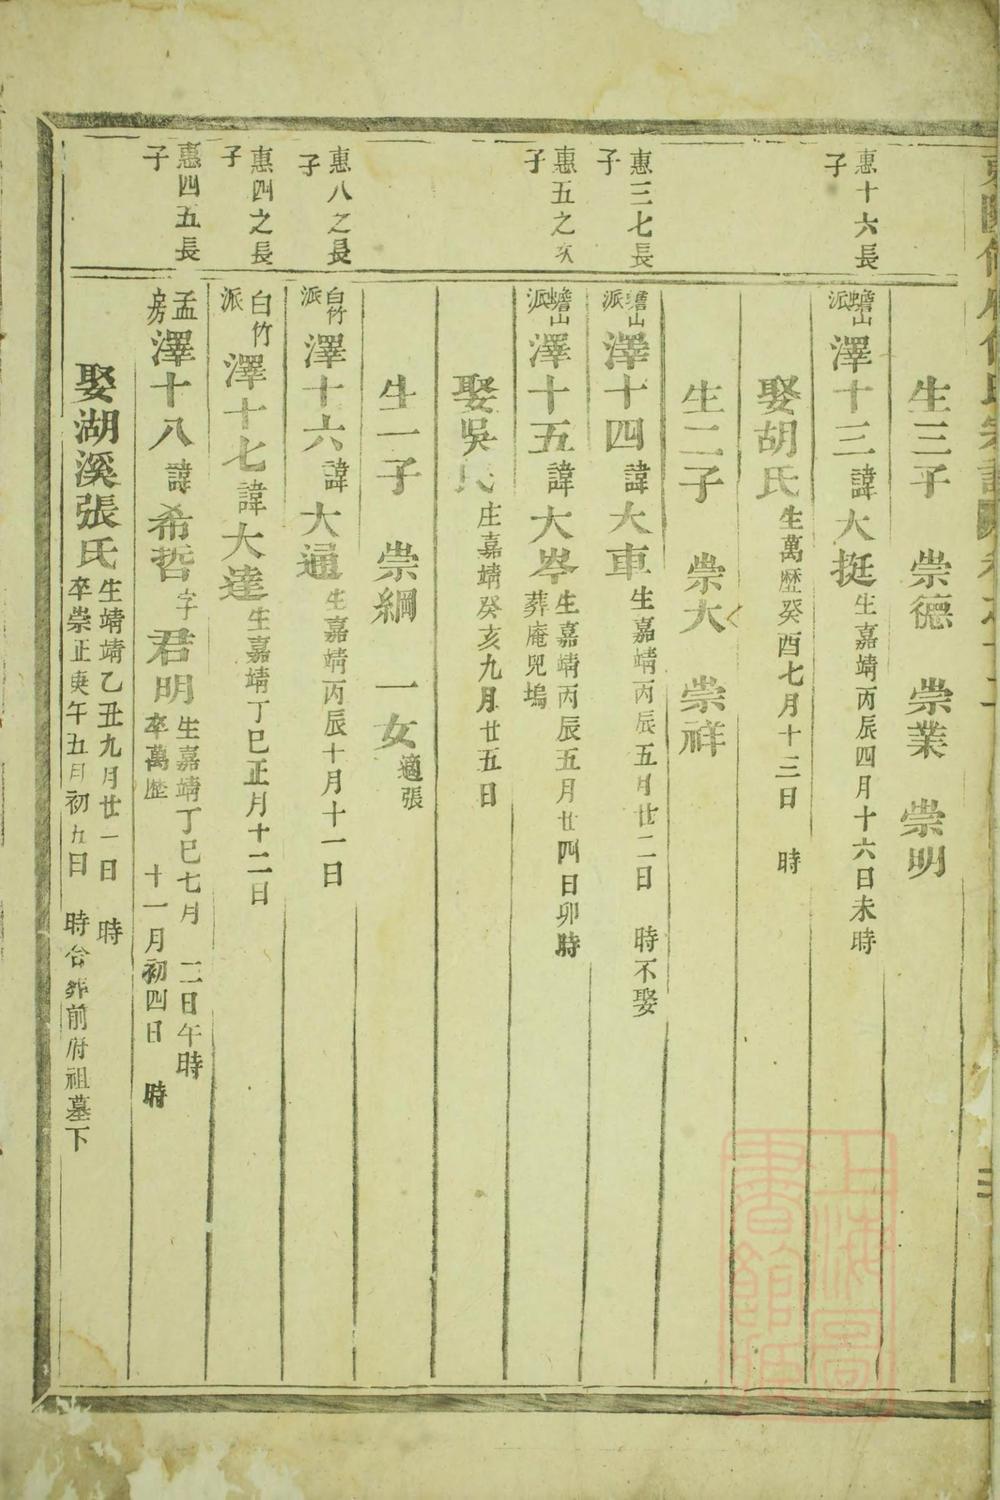 生三子 崇德 崇業 崇明
惠十六長子
蟾山派澤十三諱大挺生嘉靖丙辰四月十六日未時
娶胡氏生萬歷癸酉七月十三日 時
生二子 崇大 崇祥
惠三七長子
蟾山派澤十四諱大車生嘉靖丙辰五月廿二日 時不娶
惠五之次子
蟾山派澤十五諱大岑生嘉靖丙辰五月廿四日卯時
葬庵兜塢
娶吳氏庄嘉靖癸亥九月廿五日
生一子 崇綱 一女適張
惠八之長子
白竹派澤十六諱大通生嘉靖丙辰十月十一日
惠四之長子
白竹派澤十七諱大達生嘉靖丁巳正月十二日
惠四五長子
孟房澤十八諱希哲字君明生嘉靖丁巳七月 二日午時
卒萬歷 十一月初四日 時
娶湖溪張氏生靖靖乙丑九月廿一日 時
卒崇正庚午五月初九日 時合葬前府祖墓下
上海圖書館藏